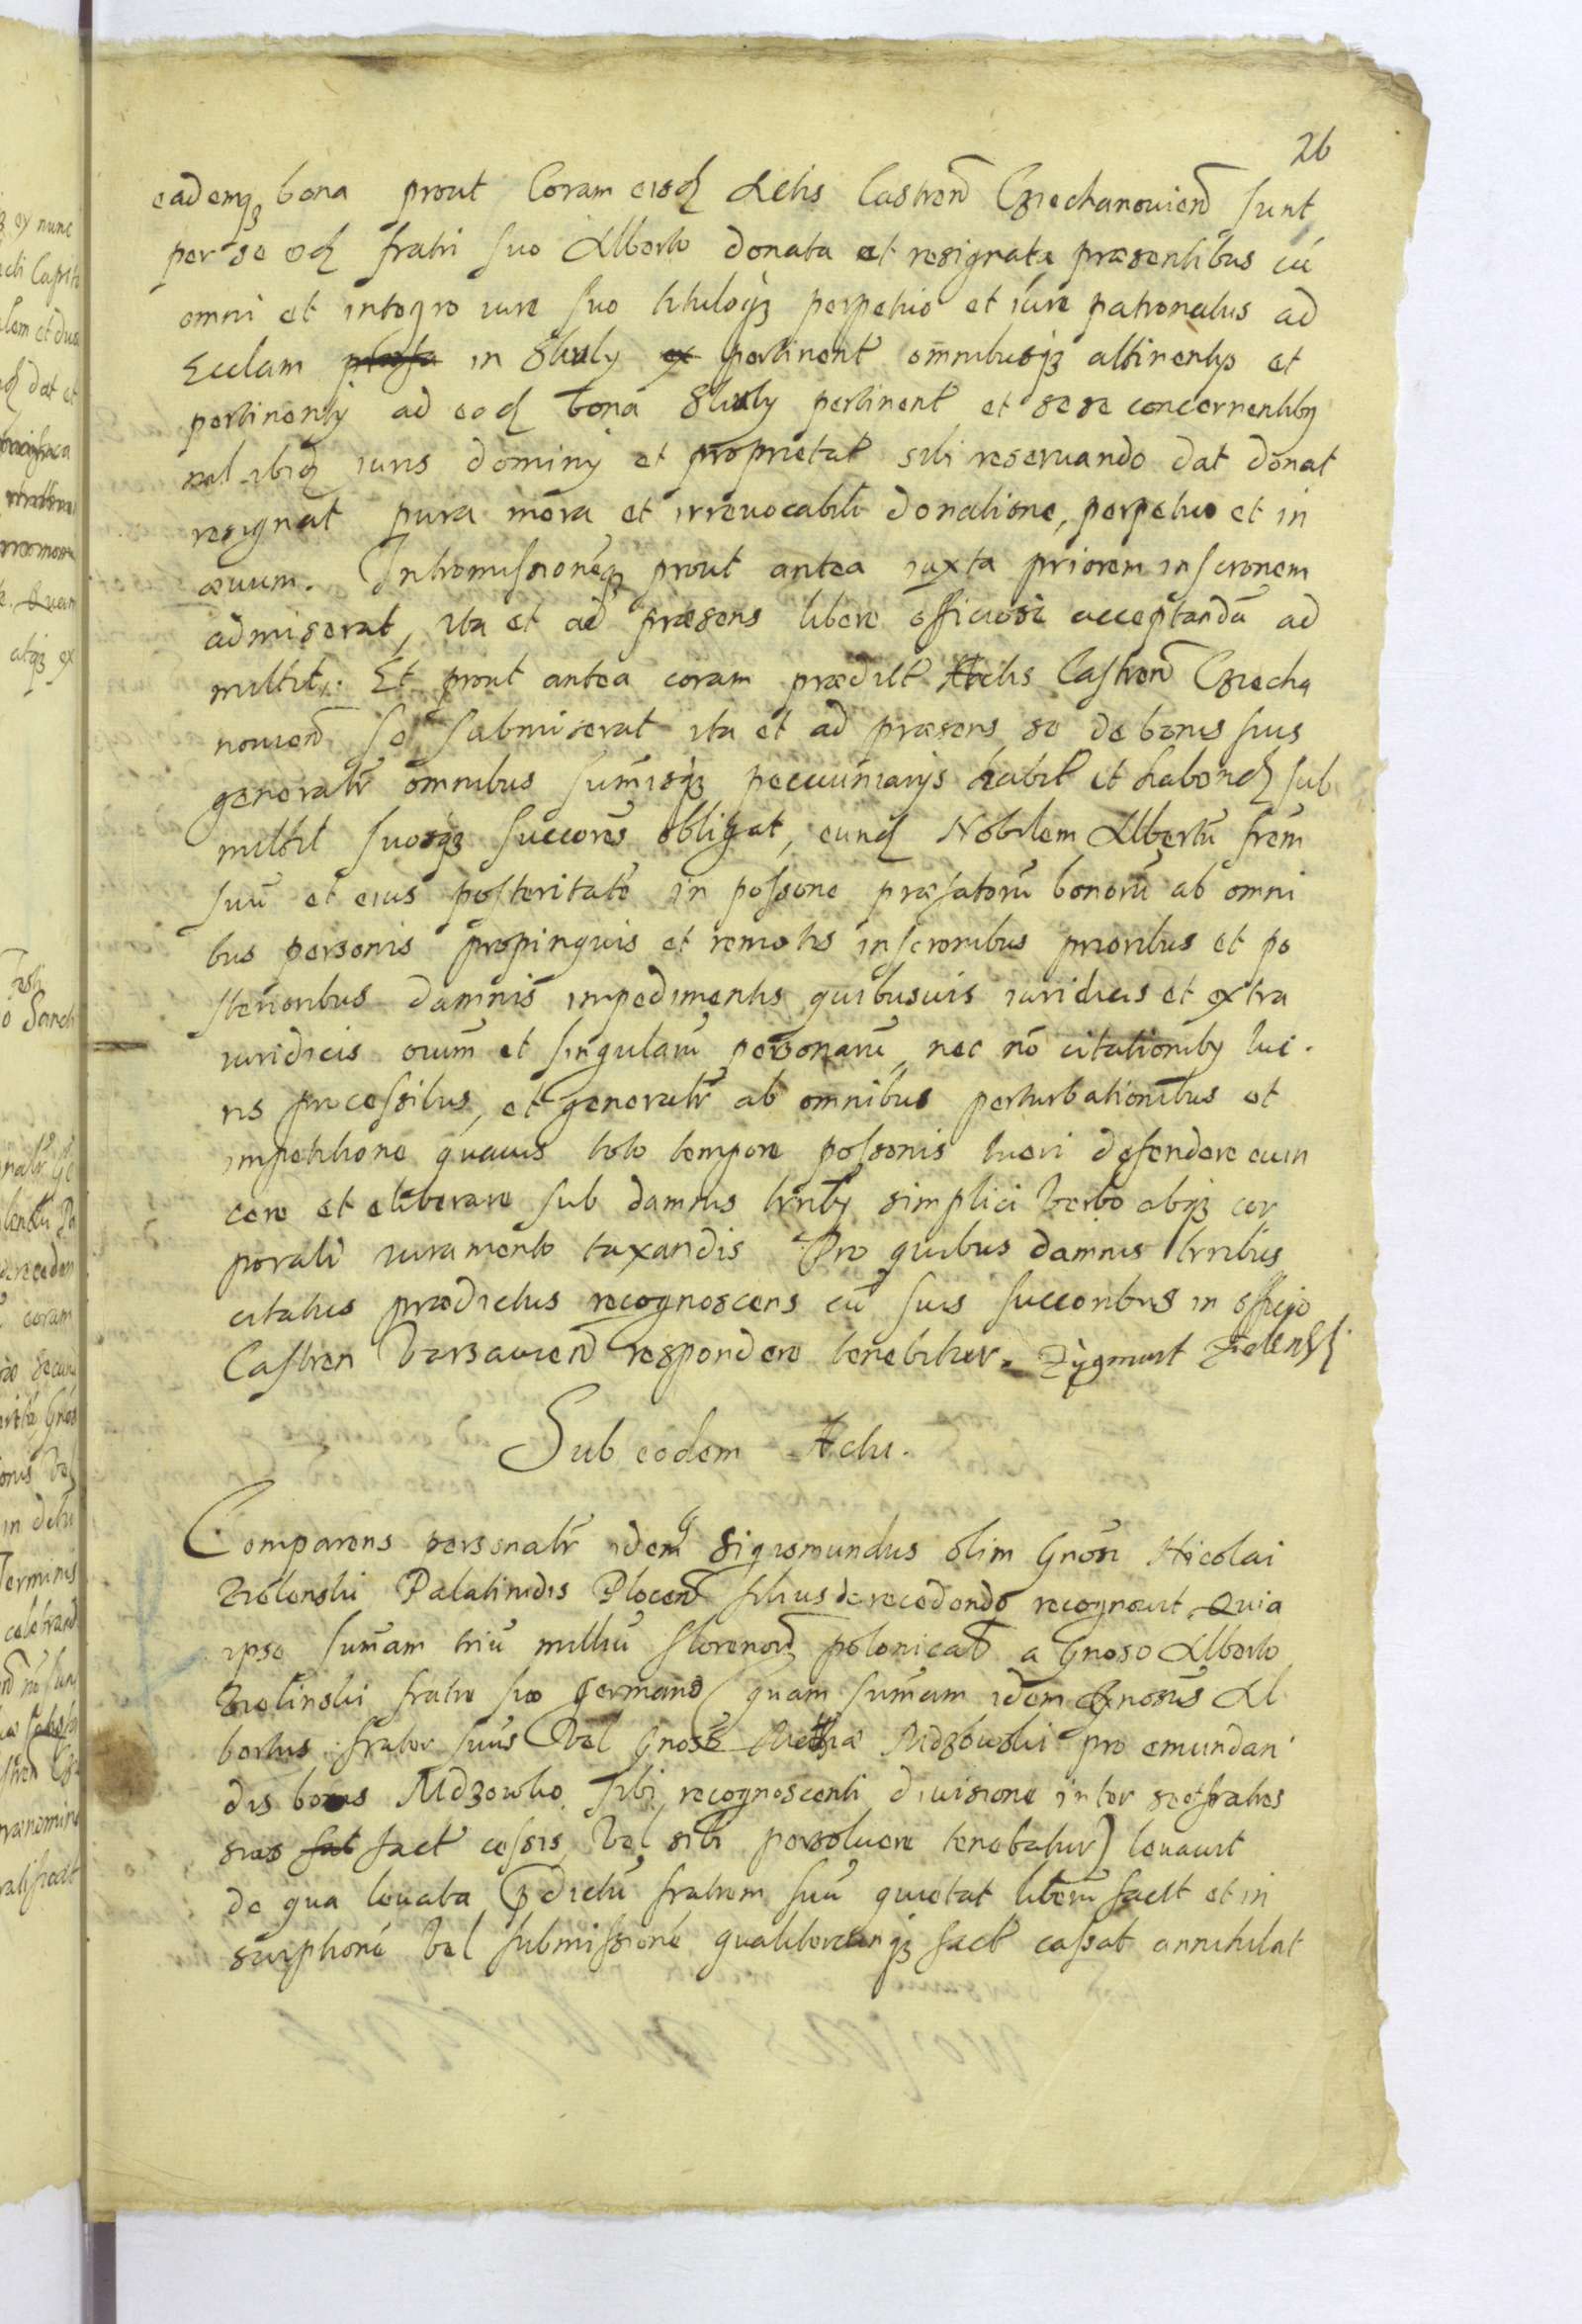 26
eademq₃ bona prout Coram eisd Actis Castren Cziechanouien sunt
per se eid fratri suo Alberto donata et resignata præsentibus cū
omni et integro iure suo tituloq₃ perpetuo et iure patronatus ad
Ecclam in pertinent omnibusq₃ attinentijs et
pertinentijs ad ead bona pertinent et sese concernentiby
nil ibid iuris dominij et proprietat sibi reseruando dat donat
resignat pura mera et irreuocabili donatione, perpetuo et in
æuum. Intromissionēq₃ prout antea iuxta priorem inscronem
admiserat, ita et ad præsens libere officiose acceptandā ad
mittit. Et prout antea coram prædict Actis Castren Cziecha
nouien se submiserat ita et ad præsens se de bonis suis
generalr omnibus sumisq₃ pecuuniarijs habit et habend sub
mittit suosq₃ succores obligat, eund Nobilem Albertū frem
suū et eius posteritatē in possone præfatorū bonorū ab omni
bus personis propinquis et remotis inscronibus prioribus et po
sterioribus damnis impedimentis quibusuis iuridicis et extra
iuridicis oium et singularū personarū, nec nō citationiby lue.
ris processibus, et generalr ab omnibus perturbationibus et
impetitione quauis toto tempore possonis tueri defendere euin
cere et eliberare sub damnis trriby simplici verbo absq₃ cor
porali iuramento taxandis Pro quibus damnis trribus
citatus prædictus recognoscens cū suis succoribus in officio
Castren Varsauien respondere tenebitur. Zÿgmunt Zielenski
Sub eodem Actu.
Comparens personalr idem G Sigismundus olim Gnosi Nicolai
Zielenski Palatinidis Plocen filius de recedendo recognouit Quia
ipse sumam triū milliū florenor₃ polonical a Gnoso Alberto
Zielinski fratre suo germano (quam sumam idem Gnosus Al
bertus frater suus vel Gnosē pro emundan
dis bonis sibi recognoscenti diuisione inter se et fratres
suos fact cessis, vel sibi persoluere tenebatur) leuauit
de qua leuata pdictū fratrem suū quietat liberū facit et in
scriptionē vel submissionē qualitercunq₃ fact cassat annihilat